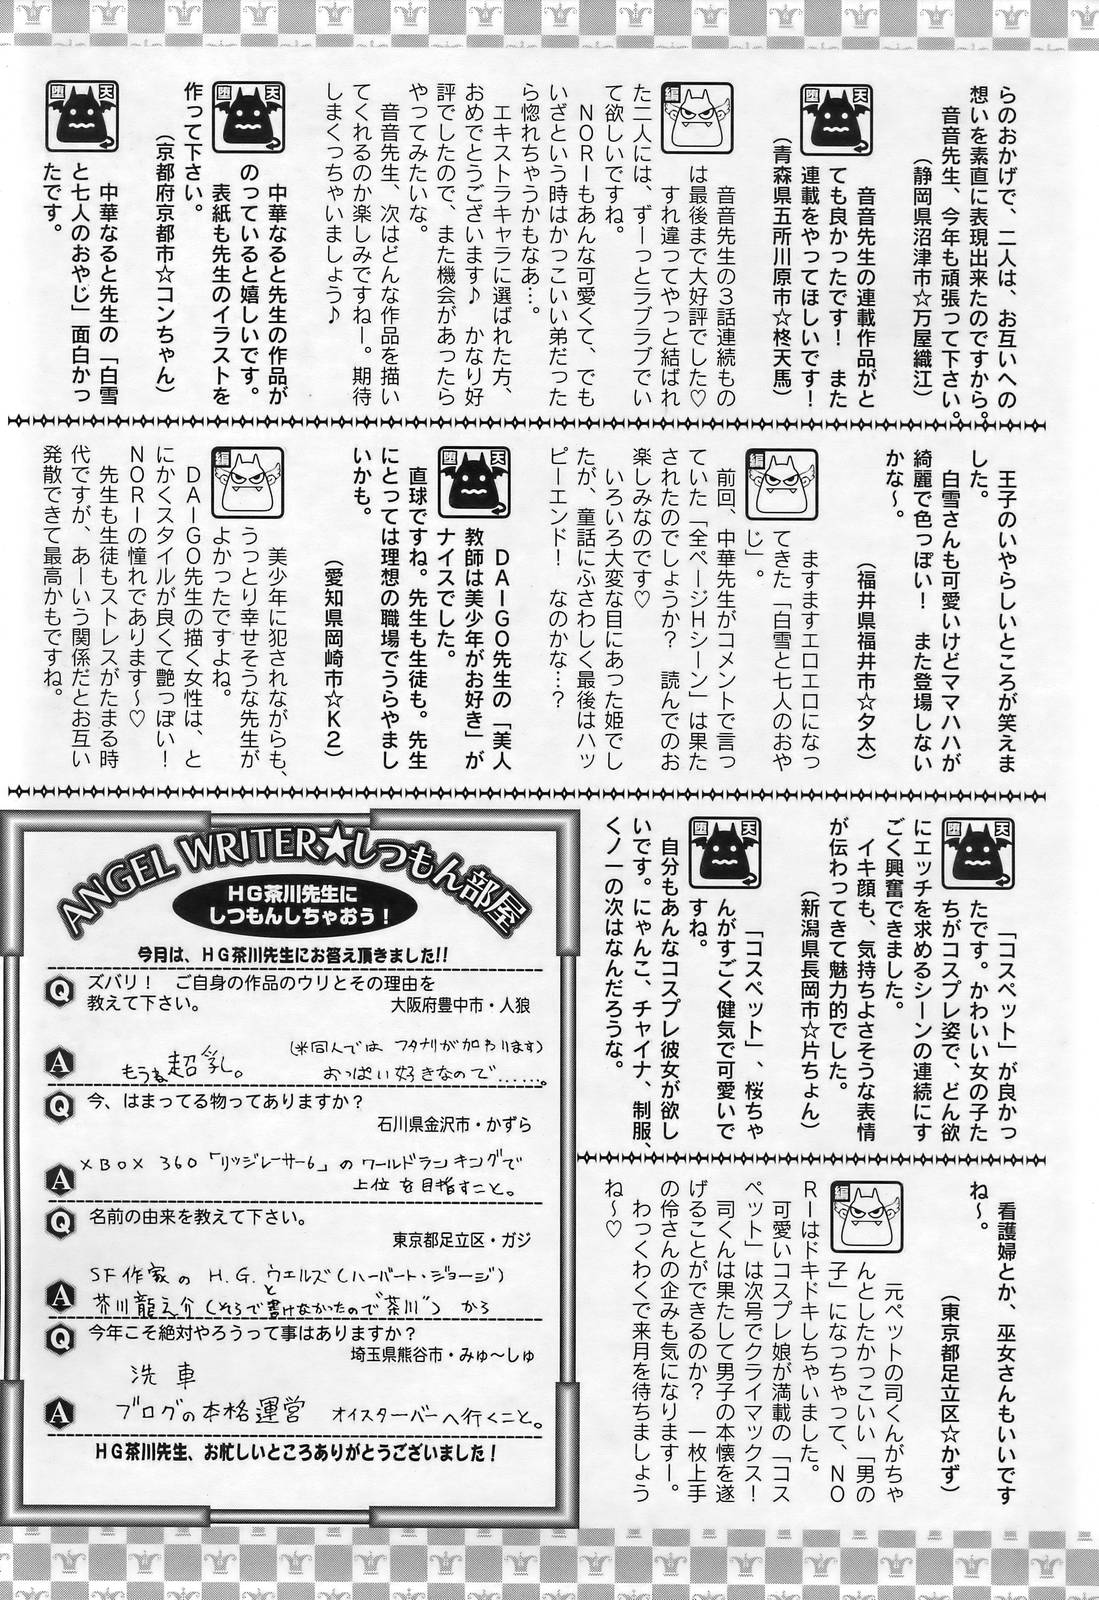 らのおかげで、二人は、お互いへの
想いを素直に表現出来たのですから。
音音先生、今年も頑張って下さい。
（静岡県沼津市☆万屋織江）
堕天
音音先生の連載作品がと
ても良かったです！　また
連載をやってほしいです！
（青森県五所川原市☆柊天馬）
編
音音先生の３話連続もの
は最後まで大好評でした♡
すれ違ってやっと結ばれ
た二人には、ずーっとラブラブでい
て欲しいですね。
ＮＯＲＩもあんな可愛くて、でも
いざという時はかっこいい弟だった
ら惚れちゃうかもなあ…。
エキストラキャラに選ばれた方、
おめでとうございます♪　かなり好
評でしたので、また機会があったら
やってみたいな。
音音先生、次はどんな作品を描い
てくれるのか楽しみですねー。期待
しまくっちゃいましょう♪
堕天
中華なると先生の作品が
のっていると嬉しいです。
表紙も先生のイラストを
作って下さい。
（京都府京都市☆コンちゃん）
堕天
中華なると先生の「白雪
と七人のおやじ」面白かっ
たです。
王子のいやらしいところが笑えま
した。
白雪さんも可愛いけどママハハが
綺麗で色っぽい！　また登場しない
かな〜。
（福井県福井市☆夕太）
編
ますますエロエロになっ
てきた「白雪と七人のおや
じ」。
前回、中華先生がコメントで言っ
ていた「全ページＨシーン」は果た
されたのでしょうか？　読んでのお
楽しみなのです♡
いろいろ大変な目にあった姫でし
たが、童話にふさわしく最後はハッ
ピーエンド！　なのかな…？
堕天
「コスペット」が良かっ
たです。かわいい女の子た
ちがコスプレ姿で、どん欲
にエッチを求めるシーンの連続にす
ごく興奮できました。
イキ顔も、気持ちよさそうな表情
が伝わってきて魅力的でした。
（新潟県長岡市☆片ちょん）
堕天
「コスペット」、桜ちゃ
んがすごく健気で可愛いで
すね。
自分もあんなコスプレ彼女が欲し
いです。にゃんこ、チャイナ、制服、
くノ一の次はなんだろうな。
看護婦とか、巫女さんもいいです
ね〜。
（東京都足立区☆かず）
編
元ペットの司くんがちゃ
んとしたかっこいい「男の
子」になっちゃって、ＮＯ
ＲＩはドキドキしちゃいました。
可愛いコスプレ娘が満載の「コス
ペット」は次号でクライマックス！
司くんは果たして男子の本懐を遂
げることができるのか？　一枚上手
の伶さんの企みも気になりますー。
わっくわくで来月を待ちましょう
ね〜♡
ANGEL WRITER★しつもん部屋
ＨＧ茶川先生に
しつもんしちゃおう！
今月は、ＨＧ茶川先生にお答え頂きました!!
Q ズバリ！　ご自身の作品のウリとその理由を
教えて下さい。　大阪府豊中市・人狼
A もうね超乳。（※同人では フタナリが加わります）
おっぱい好きなので……。
Q 今、はまってる物ってありますか？
石川県金沢市・かずら
A XBOX 360「リッジレーサー6」の ワールドランキングで
上位 を目指すこと。
Q 名前の由来を教えて下さい。
東京都足立区・ガジ
A SF作家の H.G.ウエルズ（ハーバート・ジョージ）
と
芥川龍之介（そらで書けなかったので"茶川"）から
Q 今年こそ絶対やろうって事はありますか？
埼玉県熊谷市・みゅ〜しゅ
A 洗車
ブログの本格運営　オイスターバーへ行くこと。
ＨＧ茶川先生、お忙しいところありがとうございました！